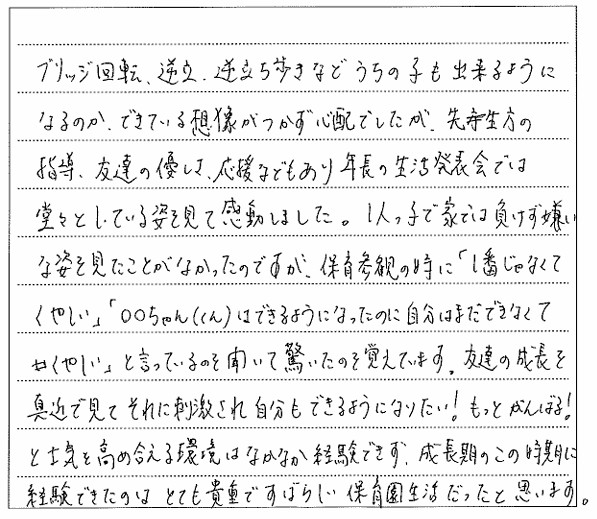 ブリッジ回転、逆立、逆立ち歩きなど うちの子も 出来るように
なるのか、できている想像がつかず心配でしたが、先生方の
指導、友達の優しさ、応援などもあり 年長の生活発表会では
堂々としている姿を見て感動しました。1人っ子で家では負けず嫌い
な姿を見たことがなかったのですが、保育参観の時に「1番じゃなくて
くやしい」「○○ちゃん(くん)はできるようになったのに自分はまだできなくて
くやしい」と言っているのを聞いて驚いたのを覚えています。友達の成長を
真近で見て それに刺激され自分もできるようになりたい!もっとがんばる!
と士気を高め合える環境はなかなか経験できず、成長期のこの時期に
経験できたのは とても貴重ですばらしい 保育園生活だったと思います。